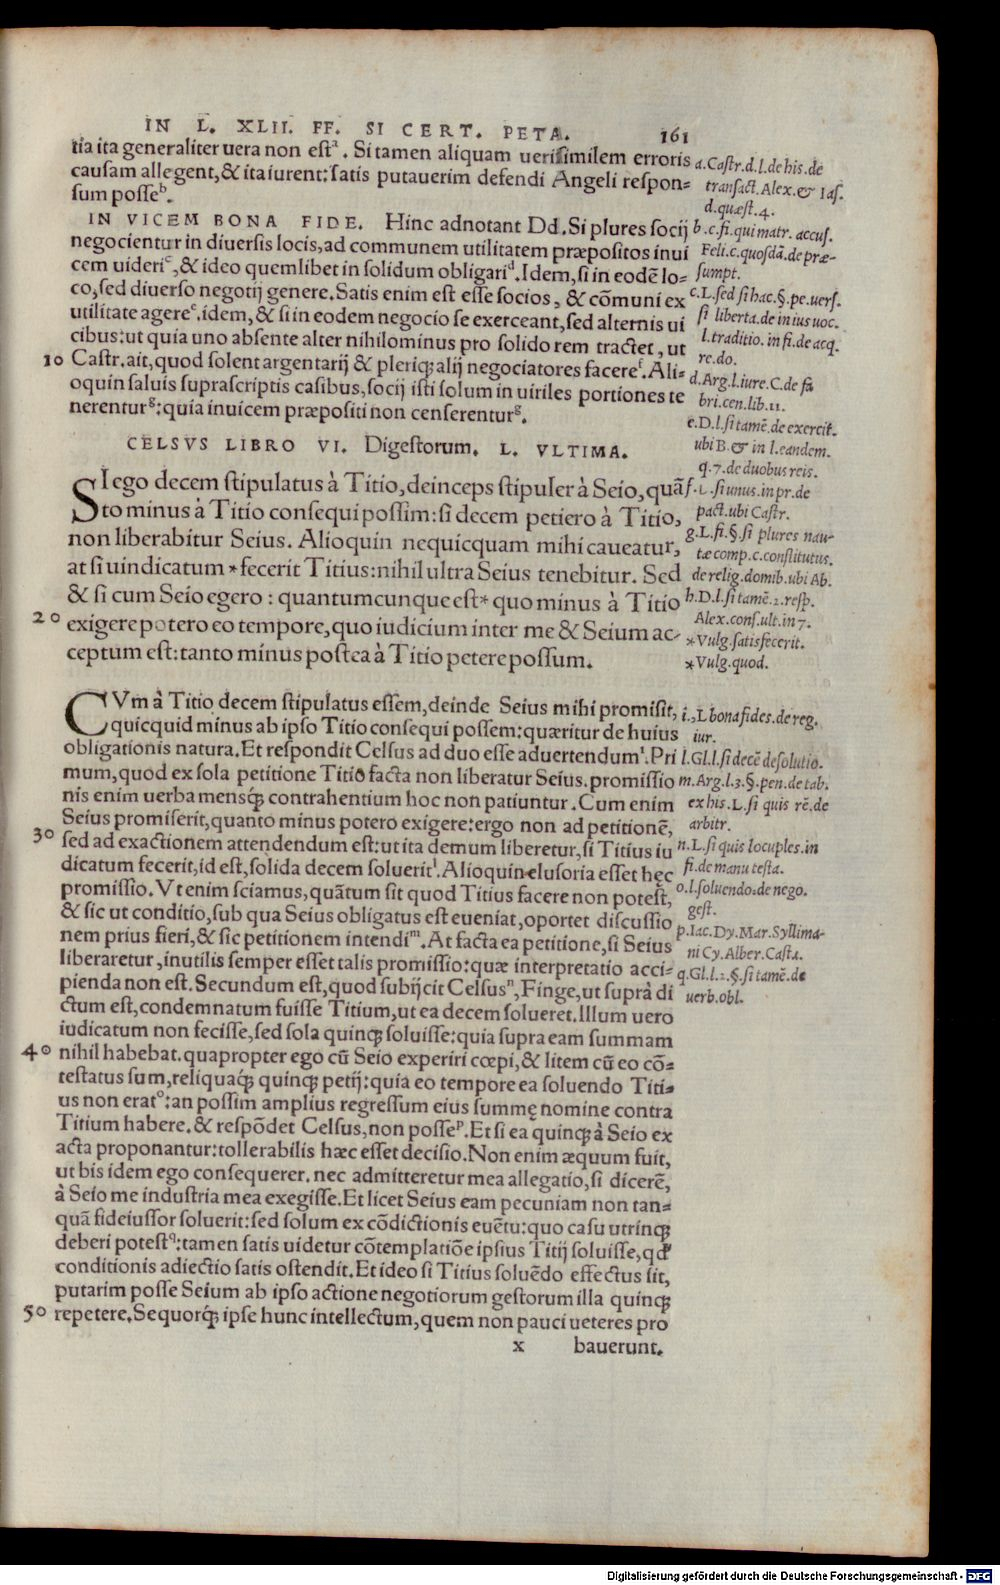 IN L. XLII. FF. SI CERT. PETA. 161
tia ita generaliter uera non estᵃ. Si tamen aliquam uerisimilem erroris
causam allegent, & ita iurent: satis putauerim defendi Angeli respon=
sum posseᵇ.
IN VICEM BONA FIDE. Hinc adnotant Dd. Si plures socij
negocientur in diuersis locis, ad communem utilitatem præpositos inui
cem uideriᶜ, & ideo quemlibet in solidum obligariᵈ. Idem, si in eodẽ lo=
co, sed diuerso negotij genere. Satis enim est esse socios, & cõmuni ex
utilitate agereᵉ. idem, & si in eodem negocio se exerceant, sed alternis ui
cibus: ut quia uno absente alter nihilominus pro solido rem tractet, ut
10 Castr. ait, quod solent argentarij & pleriq; alij negociatores facereᶠ. Ali=
oquin saluis suprascriptis casibus, socij isti solum in uiriles portiones te
nerenturᵍ: quia inuicem præpositi non censerenturᵍ.
CELSVS LIBRO VI. Digestorum. L. VLTIMA.
SI ego decem stipulatus à Titio, deinceps stipuler à Seio, quã
to minus à Titio consequi possim: si decem petiero à Titio,
non liberabitur Seius. Alioquin nequicquam mihi caueatur,
at si uindicatum * fecerit Titius: nihil ultra Seius tenebitur. Sed
& si cum Seio egero : quantumcunque est* quo minus à Titio
20 exigere potero eo tempore, quo iudicium inter me & Seium ac=
ceptum est: tanto minus postea à Titio petere possum.
CVm à Titio decem stipulatus essem, deinde Seius mihi promisit,
quicquid minus ab ipso Titio consequi possem: quæritur de huius
obligationis natura. Et respondit Celsus ad duo esse aduertendumⁱ. Pri
mum, quod ex sola petitione Titio facta non liberatur Seius. promissio
nis enim uerba mensq́; contrahentium hoc non patiuntur. Cum enim
Seius promiserit, quanto minus potero exigere: ergo non ad petitionẽ,
30 sed ad exactionem attendendum est: ut ita demum liberetur, si Titius iu
dicatum fecerit, id est, solida decem solueritˡ. Alioquin elusoria esset hęc
promissio. Vt enim sciamus, quãtum sit quod Titius facere non potest,
& sic ut conditio, sub qua Seius obligatus est eueniat, oportet discussio
nem prius fieri, & sic petitionem intendiᵐ. At facta ea petitione, si Seius
liberaretur, inutilis semper esset talis promissio: quæ interpretatio acci=
pienda non est. Secundum est, quod subijcit Celsusⁿ, Finge, ut suprà di
ctum est, condemnatum fuisse Titium, ut ea decem solueret. Illum uero
iudicatum non fecisse, sed sola quinq; soluisse: quia supra eam summam
40 nihil habebat. quapropter ego cũ Seio experiri cœpi, & litem cũ eo cõ=
testatus sum, reliquaq́; quinq; petij: quia eo tempore ea soluendo Titi=
us non eratᵒ: an possim amplius regressum eius summę nomine contra
Titium habere. & respõdet Celsus, non posseᵖ. Et si ea quinq; à Seio ex
acta proponantur: tollerabilis hæc esset decisio. Non enim æquum fuit,
ut bis idem ego consequerer. nec admitteretur mea allegatio, si dicerẽ,
à Seio me industria mea exegisse. Et licet Seius eam pecuniam non tan=
quã fideiussor soluerit: sed solum ex cõdictionis euẽtu: quo casu utrinq;
deberi potest𐞥: tamen satis uidetur cõtemplatiõe ipsius Titij soluisse, qđ
conditionis adiectio satis ostendit. Et ideo si Titius soluẽdo effectus sit,
putarim posse Seium ab ipso actione negotiorum gestorum illa quinq;
50 repetere. Sequorq́; ipse hunc intellectum, quem non pauci ueteres pro
x bauerunt.
a. Castr. d. l. de his. de
transact. Alex. & Ias.
d. quæst. 4.
b. c. fi. qui matr. accus.
Feli. c. quosdã. de præ=
sumpt.
c. L. sed si hac. §. pe. uers.
si liberta. de in ius uoc.
l. traditio. in fi. de acq.
re. do.
d. Arg. l. iure. C. de fa
bri. cen. lib. 11.
e. D. l. si tamẽ. de exercit.
ubi B. & in l. eandem.
q. 7. de duobus reis.
f. L. si unus. in pr. de
pact. ubi Castr.
g. L. fi. §. si plures nau=
tæ comp. c. constitutus.
de relig. domib. ubi Ab.
h. D. l. si tamẽ. 2. resp.
Alex. cons. ult. in 7.
*Vulg. satisfecerit.
*Vulg. quod.
i. L bona fides. de reg.
iur.
l. Gl. l. si decẽ de solutio.
m. Arg. l. 3. §. pen. de tab.
ex his. L. si quis rẽ. de
arbitr.
n. L. si quis locuples. in
fi. de manu testa.
o. l. soluendo. de nego.
gest.
p. Iac. Dy. Mar. Syllima=
ni Cy. Alber. Casta.
q. Gl. l. 2. §. si tamẽ. de
uerb. obl.
Digitalisierung gefördert durch die Deutsche Forschungsgemeinschaft - DFG